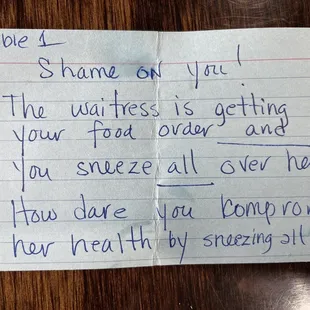 ble 1
Shame on you!
The waitress is getting
your food order and
you sneeze all over he
How dare you compro
her health by sneezing all